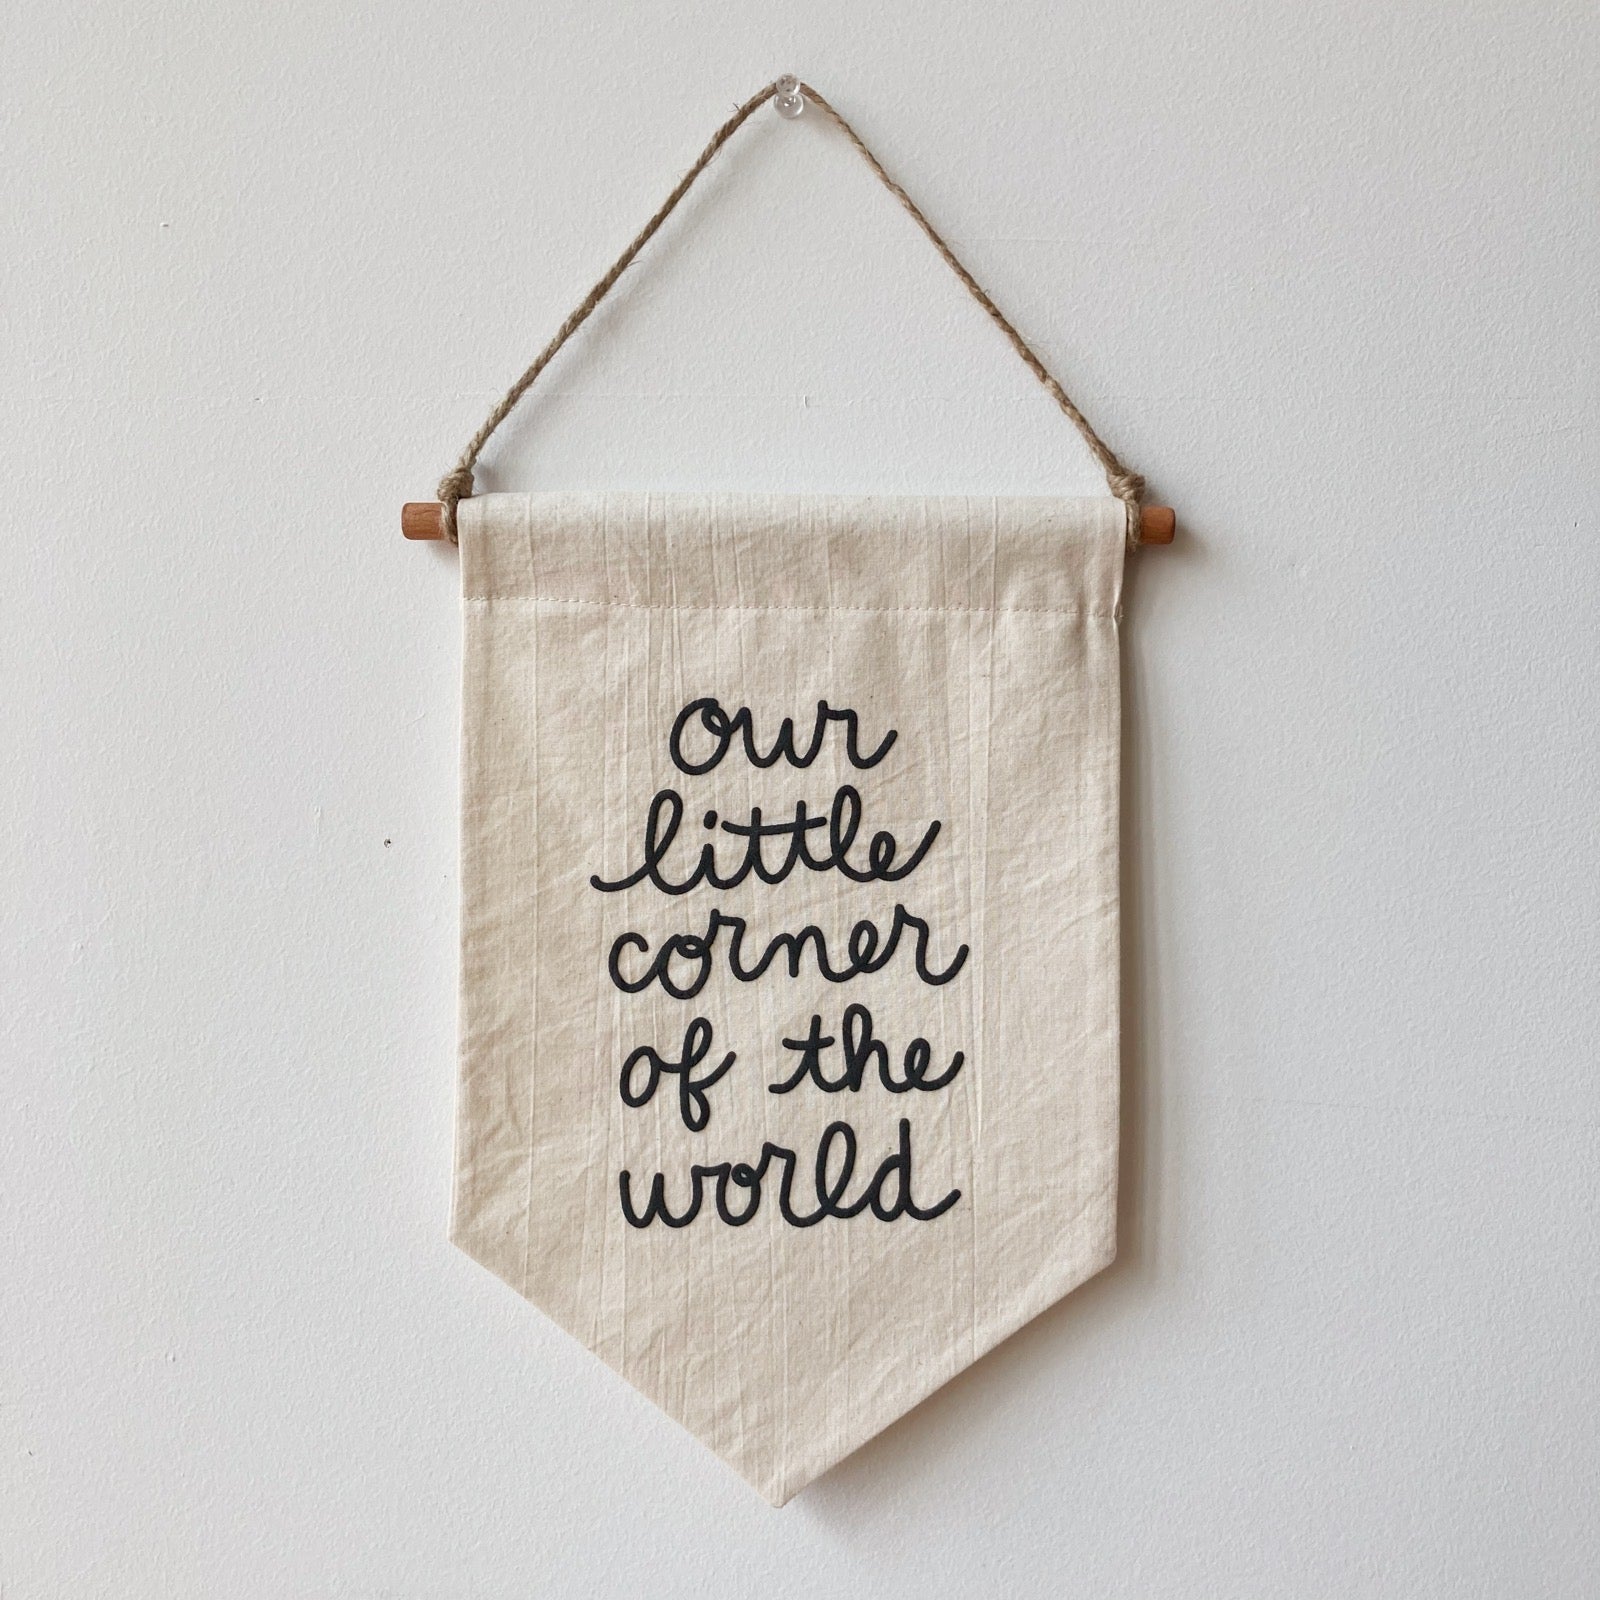 our
little
corner
of the
world